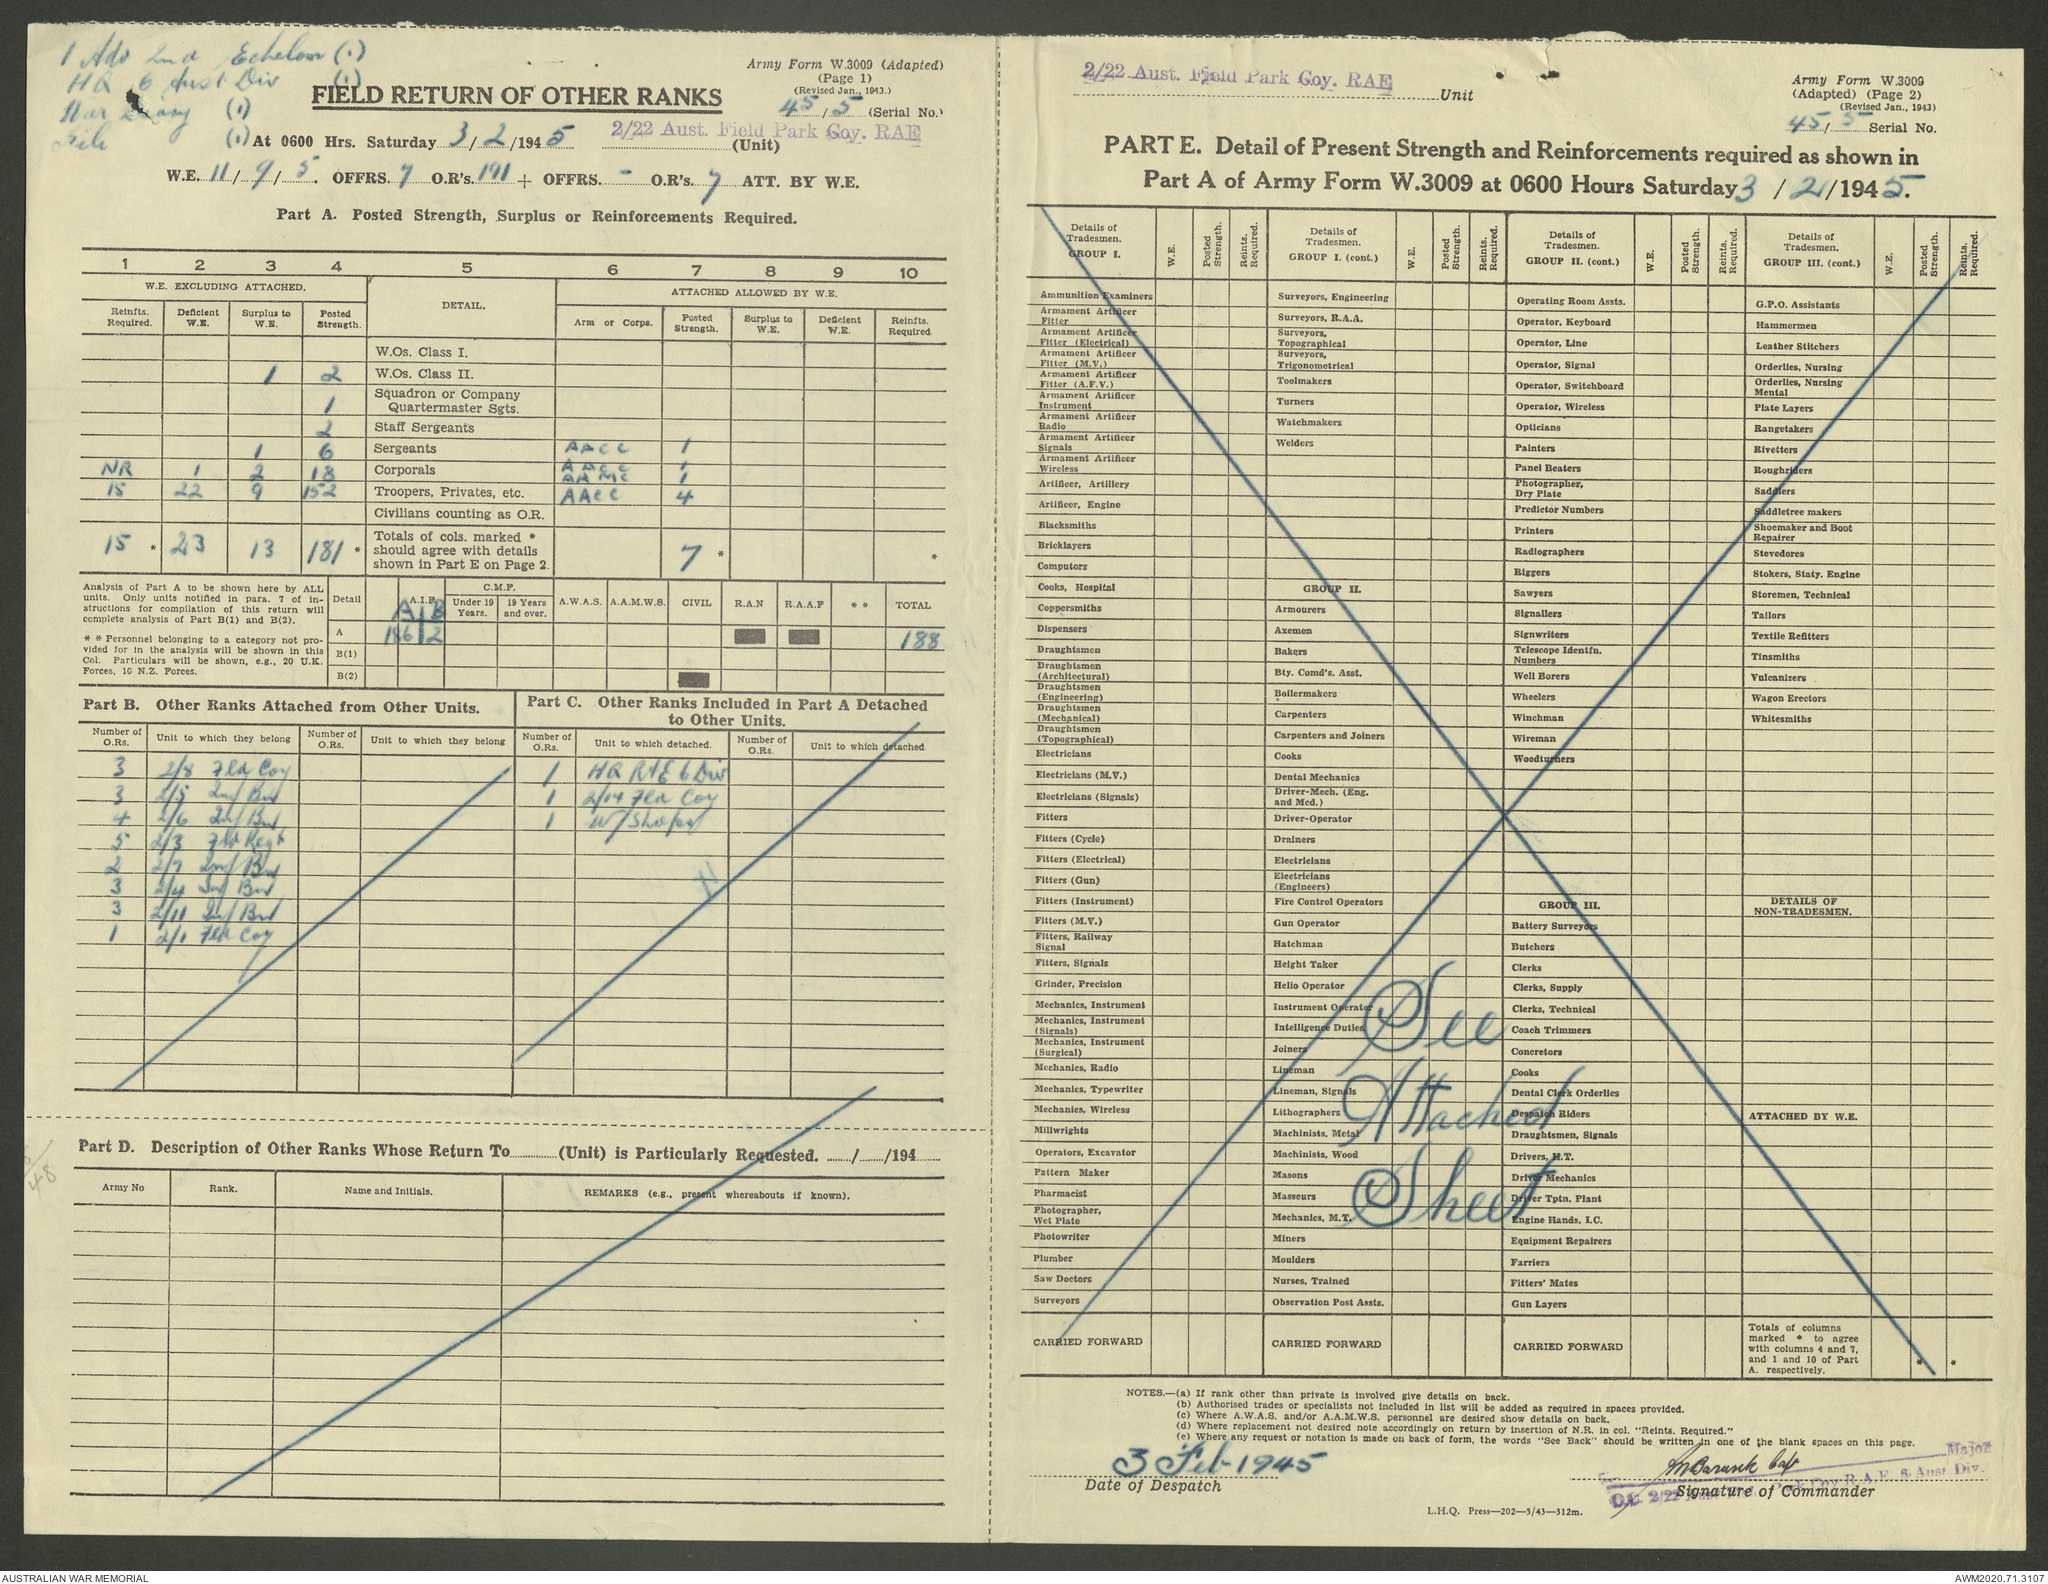 1 Adv 2nd Echelon (1)
HQ 6 Aust Div (1)
War Diary (1)
File (1)
Army Form W.3009 (Adapted)
(Page 1)
(Revised Jan., 1943.)
45/5 (Serial No.)
FIELD RETURN OF OTHER RANKS
At 0600 Hrs. Saturday 3/2/1945 2/22 Aust. Field Park Coy. RAE (Unit)
W.E. 11/9/5. OFFRS. 7 O.R's. 191 + OFFRS. - O.R's. 7 ATT. BY W.E.
Part A. Posted Strength, Surplus or Reinforcements Required.
1 2 3 4 5 6 7 8 9 10
W.E. EXCLUDING ATTACHED. DETAIL. ATTACHED ALLOWED BY W.E.
Reinfts. Required. Deficient W.E. Surplus to W.E. Posted Strength. Arm or Corps. Posted Strength. Surplus to W.E. Deficient W.E. Reinfts. Required.
W.Os. Class I.
1 2 W.Os. Class II.
1 Squadron or Company Quartermaster Sgts.
2 Staff Sergeants
1 6 Sergeants AACC 1
NR 1 2 18 Corporals AACC 1
AAMC 1
15 22 9 152 Troopers, Privates, etc. AACC 4
Civilians counting as O.R.
15 * 23 13 181 * Totals of cols. marked * should agree with details shown in Part E on Page 2. 7 * *
Analysis of Part A to be shown here by ALL
units. Only units notified in para. 7 of in-
structions for compilation of this return will
complete analysis of Part B(1) and B(2).
* * Personnel belonging to a category not pro-
vided for in the analysis will be shown in this
Col. Particulars will be shown, e.g., 20 U.K.
Forces, 10 N.Z. Forces.
Detail A.I.F. C.M.F. Under 19 Years. 19 Years and over. A.W.A.S. A.A.M.W.S. CIVIL R.A.N R.A.A.F * * TOTAL
A B
A 186 2 188
B(1)
B(2)
Part B. Other Ranks Attached from Other Units.
Number of O.Rs. Unit to which they belong Number of O.Rs. Unit to which they belong
3 2/8 Fld Coy
3 2/5 Inf Bn
4 2/6 Inf Bn
5 2/3 Fld Regt
2 2/7 Inf Bn
3 2/4 Inf Bn
3 2/11 Inf Bn
1 2/1 Fld Coy
Part C. Other Ranks Included in Part A Detached
to Other Units.
Number of O.Rs. Unit to which detached. Number of O.Rs. Unit to which detached
1 HQ RAE 6 Div
1 2/14 Fld Coy
1 W/Shops
Part D. Description of Other Ranks Whose Return To (Unit) is Particularly Requested. / /194
Army No Rank. Name and Initials. REMARKS (e.g., present whereabouts if known).
2/22 Aust. Field Park Coy. RAE Unit
Army Form W.3009
(Adapted) (Page 2)
(Revised Jan., 1943)
45/5 Serial No.
PART E. Detail of Present Strength and Reinforcements required as shown in
Part A of Army Form W.3009 at 0600 Hours Saturday 3/2/1945.
Details of Tradesmen. GROUP I. W.E. Posted Strength. Reints. Required.
Ammunition Examiners
Armament Artificer Fitter
Armament Artificer Fitter (Electrical)
Armament Artificer Fitter (M.V.)
Armament Artificer Fitter (A.F.V.)
Armament Artificer Instrument
Armament Artificer Radio
Armament Artificer Signals
Armament Artificer Wireless
Artificer, Artillery
Artificer, Engine
Blacksmiths
Bricklayers
Computors
Cooks, Hospital
Coppersmiths
Dispensers
Draughtsmen
Draughtsmen (Architectural)
Draughtsmen (Engineering)
Draughtsmen (Mechanical)
Draughtsmen (Topographical)
Electricians
Electricians (M.V.)
Electricians (Signals)
Fitters
Fitters (Cycle)
Fitters (Electrical)
Fitters (Gun)
Fitters (Instrument)
Fitters (M.V.)
Fitters, Railway Signal
Fitters, Signals
Grinder, Precision
Mechanics, Instrument
Mechanics, Instrument (Signals)
Mechanics, Instrument (Surgical)
Mechanics, Radio
Mechanics, Typewriter
Mechanics, Wireless
Millwrights
Operators, Excavator
Pattern Maker
Pharmacist
Photographer, Wet Plate
Photowriter
Plumber
Saw Doctors
Surveyors
CARRIED FORWARD
Details of Tradesmen. GROUP I. (cont.) W.E. Posted Strength. Reints. Required.
Surveyors, Engineering
Surveyors, R.A.A.
Surveyors, Topographical
Surveyors, Trigonometrical
Toolmakers
Turners
Watchmakers
Welders
GROUP II.
Armourers
Axemen
Bakers
Bty. Comd's. Asst.
Boilermakers
Carpenters
Carpenters and Joiners
Cooks
Dental Mechanics
Driver-Mech. (Eng. and Med.)
Driver-Operator
Drainers
Electricians
Electricians (Engineers)
Fire Control Operators
Gun Operator
Hatchman
Height Taker
Helio Operator
Instrument Operator
Intelligence Duties
Joiners
Lineman
Lineman, Signals
Lithographers
Machinists, Metal
Machinists, Wood
Masons
Masseurs
Mechanics, M.T.
Miners
Moulders
Nurses, Trained
Observation Post Assts.
CARRIED FORWARD
Details of Tradesmen. GROUP II. (cont.) W.E. Posted Strength. Reints. Required.
Operating Room Assts.
Operator, Keyboard
Operator, Line
Operator, Signal
Operator, Switchboard
Operator, Wireless
Opticians
Painters
Panel Beaters
Photographer, Dry Plate
Predictor Numbers
Printers
Radiographers
Riggers
Sawyers
Signallers
Signwriters
Telescope Identfn. Numbers
Well Borers
Wheelers
Winchman
Wireman
Woodturners
GROUP III.
Battery Surveyors
Butchers
Clerks
Clerks, Supply
Clerks, Technical
Coach Trimmers
Concretors
Cooks
Dental Clerk Orderlies
Despatch Riders
Draughtsmen, Signals
Drivers, H.T.
Driver Mechanics
Driver Tptn. Plant
Engine Hands, I.C.
Equipment Repairers
Farriers
Fitters' Mates
Gun Layers
CARRIED FORWARD
Details of Tradesmen. GROUP III. (cont.) W.E. Posted Strength. Reints. Required.
G.P.O. Assistants
Hammermen
Leather Stitchers
Orderlies, Nursing
Orderlies, Nursing Mental
Plate Layers
Rangetakers
Rivetters
Roughriders
Saddlers
Saddletree makers
Shoemaker and Boot Repairer
Stevedores
Stokers, Staty. Engine
Storemen, Technical
Tailors
Textile Refitters
Tinsmiths
Vulcanizers
Wagon Erectors
Whitesmiths
DETAILS OF NON-TRADESMEN.
ATTACHED BY W.E.
Totals of columns marked * to agree with columns 4 and 7, and 1 and 10 of Part A. respectively. * *
See
Attached
Sheet
NOTES.—(a) If rank other than private is involved give details on back.
(b) Authorised trades or specialists not included in list will be added as required in spaces provided.
(c) Where A.W.A.S. and/or A.A.M.W.S. personnel are desired show details on back.
(d) Where replacement not desired note accordingly on return by insertion of N.R. in col. "Reints. Required."
(e) Where any request or notation is made on back of form, the words "See Back" should be written in one of the blank spaces on this page.
3 Feb 1945
Date of Despatch
Major
O.C. 2/22 Coy R.A.E. 6 Aust Div.
Signature of Commander
L.H.Q. Press—202—5/43—312m.
AUSTRALIAN WAR MEMORIAL
AWM2020.71.3107